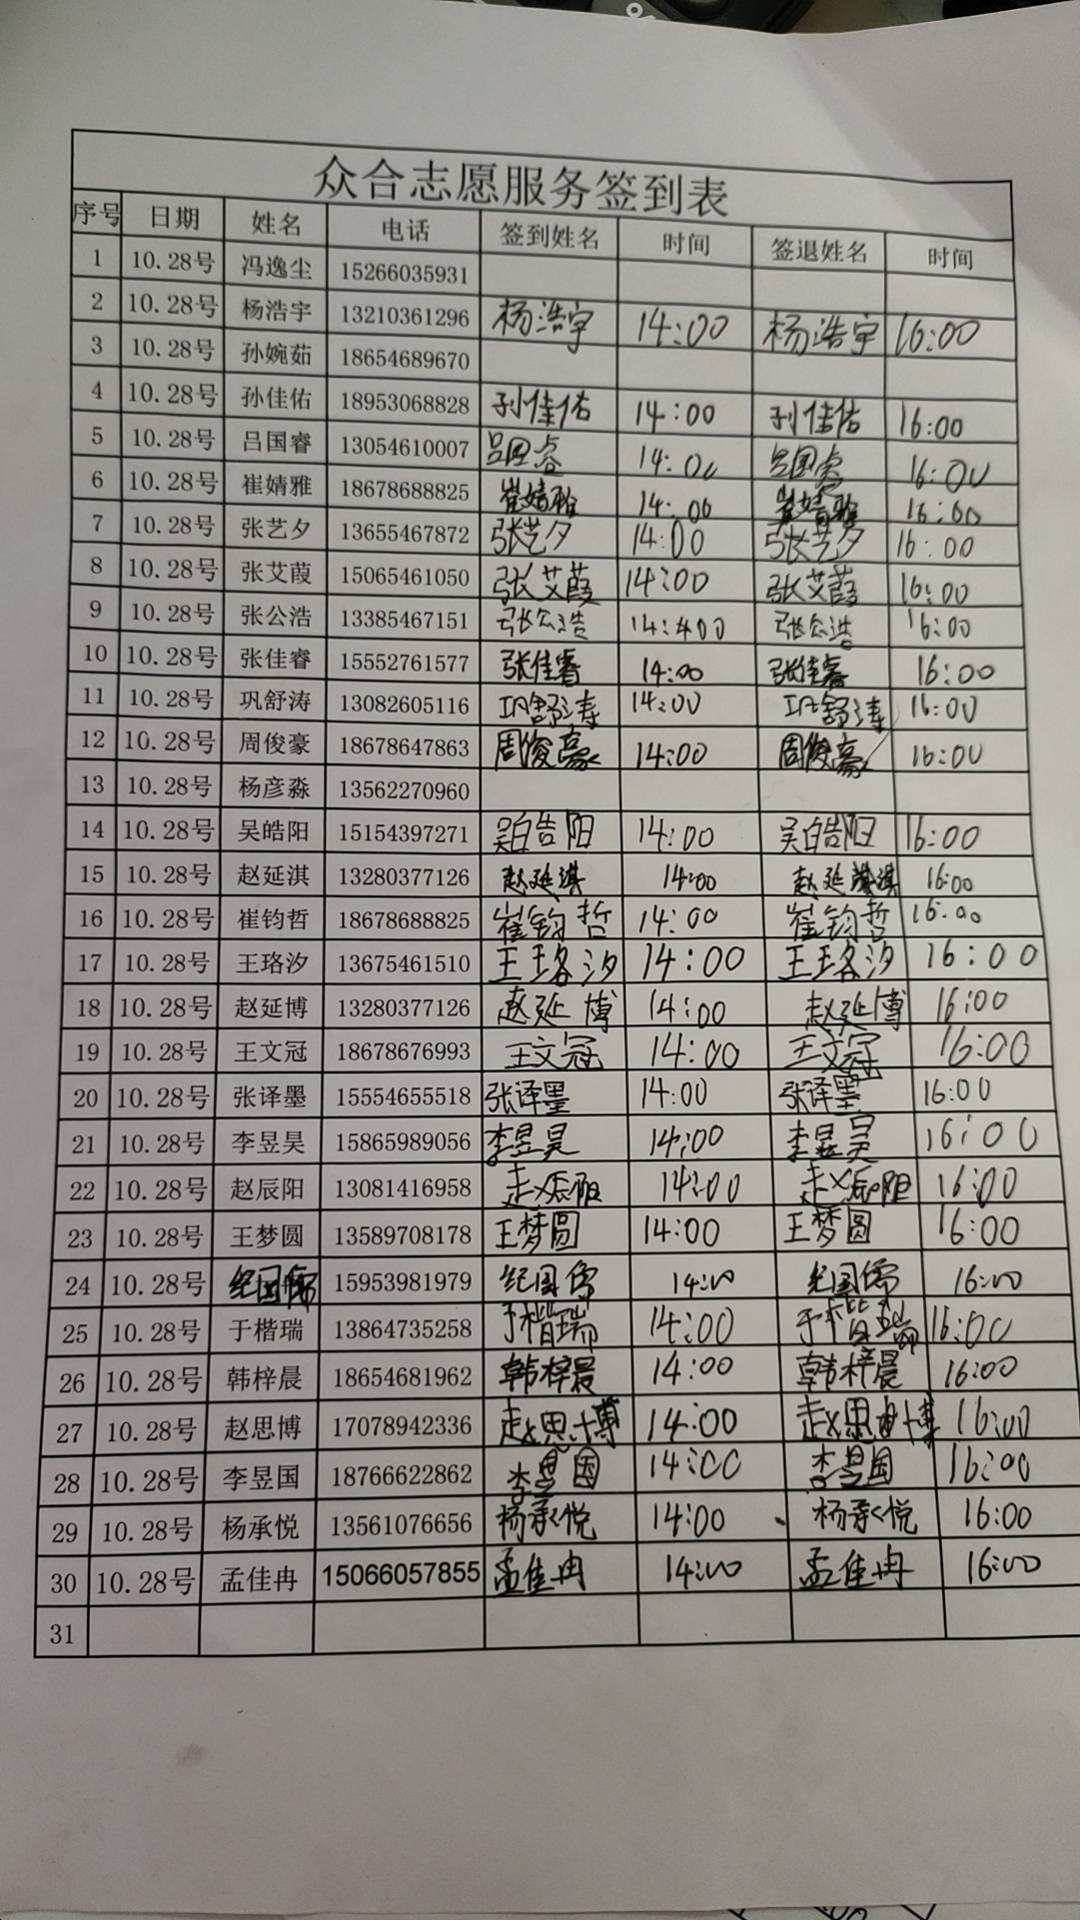 众合志愿服务签到表
序号 日期 姓名 电话 签到姓名 时间 签退姓名 时间
1 10.28号 冯逸尘 15266035931
2 10.28号 杨浩宇 13210361296 杨浩宇 14:00 杨浩宇 16:00
3 10.28号 孙婉茹 18654689670
4 10.28号 孙佳佑 18953068828 孙佳佑 14:00 孙佳佑 16:00
5 10.28号 吕国睿 13054610007 吕国睿 14:00 吕国睿 16:00
6 10.28号 崔婧雅 18678688825 崔婧雅 14:00 崔婧雅 16:00
7 10.28号 张艺夕 13655467872 张艺夕 14:00 张艺夕 16:00
8 10.28号 张艾葭 15065461050 张艾葭 14:00 张艾葭 16:00
9 10.28号 张公浩 13385467151 张公浩 14:400 张公浩 16:00
10 10.28号 张佳睿 15552761577 张佳睿 14:00 张佳睿 16:00
11 10.28号 巩舒涛 13082605116 巩舒涛 14:00 巩舒涛 16:00
12 10.28号 周俊豪 18678647863 周俊豪 14:00 周俊豪 16:00
13 10.28号 杨彦淼 13562270960
14 10.28号 吴皓阳 15154397271 吴皓阳 14:00 吴皓阳 16:00
15 10.28号 赵延淇 13280377126 赵延淇 14:00 赵延淇 16:00
16 10.28号 崔钧哲 18678688825 崔钧哲 14:00 崔钧哲 16:00
17 10.28号 王珞汐 13675461510 王珞汐 14:00 王珞汐 16:00
18 10.28号 赵延博 13280377126 赵延博 14:00 赵延博 16:00
19 10.28号 王文冠 18678676993 王文冠 14:00 王文冠 16:00
20 10.28号 张译墨 15554655518 张译墨 14:00 张译墨 16:00
21 10.28号 李昱昊 15865989056 李昱昊 14:00 李昱昊 16:00
22 10.28号 赵辰阳 13081416958 赵辰阳 14:00 赵辰阳 16:00
23 10.28号 王梦圆 13589708178 王梦圆 14:00 王梦圆 16:00
24 10.28号 纪国儒 15953981979 纪国儒 14:00 纪国儒 16:00
25 10.28号 于楷瑞 13864735258 于楷瑞 14:00 于楷瑞 16:00
26 10.28号 韩梓晨 18654681962 韩梓晨 14:00 韩梓晨 16:00
27 10.28号 赵思博 17078942336 赵思博 14:00 赵思博 16:00
28 10.28号 李昱国 18766622862 李昱国 14:00 李昱国 16:00
29 10.28号 杨承悦 13561076656 杨承悦 14:00 杨承悦 16:00
30 10.28号 孟佳冉 15066057855 孟佳冉 14:00 孟佳冉 16:00
31